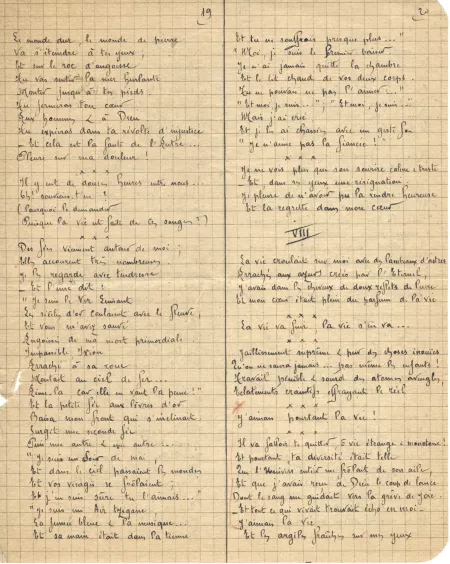 19
Le monde dur, le monde de pierre
Va s'éteindre à tes yeux,
Et sur le roc d'angoisse
Tu vas sentir la mer hurlante
Monter jusqu'à tes pieds.
Tu fermeras ton cœur
Aux hommes & à Dieu
Tu expireras dans ta révolte d'injustice
_ Et cela est la faute de l'Autre...
Pleure sur ma douleur !
x x x
Il y eut de douces heures entre nous...
Eh! souviens-t'en !
(Pourquoi le demander
Puisque la vie est faite de ces songes ?)
x x x
Des fées viennent autour de moi ;
Elles accourent très nombreuses
Je les regarde avec tendresse
_ Et l'une dit :
" Je suis le Ver Luisant
Les siècles d'or coulaient avec le fleuve,
Et vous m'avez sauvé
Angoissé de ma mort primordiale
Impassible Ixion
Arraché à sa roue
Montait au ciel de fer...
Aime la car elle en vaut la peine ! "
Et la petite fée aux lèvres d'or
Baisa mon front qui s'inclinait.
Surgit une seconde fée
Puis une autre & une autre...
" Je suis un Soir de mai,
Et dans le ciel passaient les mondes
Et vos visages se frôlaient ;
Et j'en suis sûre tu l'aimais..."
" Je suis un Air tzigane,
La fumée bleue & la musique...
Et sa main était dans la tienne
2
Et tu ne souffrais presque plus... "
" Moi, je suis le Premier baiser
Je n'ai jamais quitté la chambre
Et le lit chaud de vos deux corps.
Tu ne pouvais ne pas l'aimer... "
" Et moi je suis... " ; " Et moi, je suis... "
Mais j'ai crié
Et je les ai chassées avec un geste fou
" Je n'aime pas la fiancée ! "
x x x
Je ne vois plus que son sourire calme & triste
_ Et, dans ses yeux une résignation,
Je pleure de n'avoir pu la rendre heureuse
Et la regrette dans mon cœur
VIII
La vie croulait sur moi avec des lambeaux d'astres
Arrachés aux azurs créés par l'Eternel,
J'avais dans les cheveux de doux reflets de lune
Et mon cœur était plein du parfum de la vie
x x x
La vie va fuir la vie s'en va...
x x x
Jaillissement suprême & pur des choses inouïes
Qu'on ne saura jamais... pas même les enfants !
Travail pénible & sourd des atomes aveugles,
Eclatements créatifs effrayant le ciel
x x x
J'aimais pourtant la vie !
x x x
Il va falloir te quitter ô vie étrange & monotone !
Et pourtant ta diversité était telle
Que l'Univers entier me frôlait de son aile,
Et que j'avais reçu à Dieu le coup de lance
Dont le sang me guidait vers la grève de joie.
_ Et tout ce qui vivait trouvait écho en moi _
J'aimais la vie
Et les argiles fraîches sur mes yeux